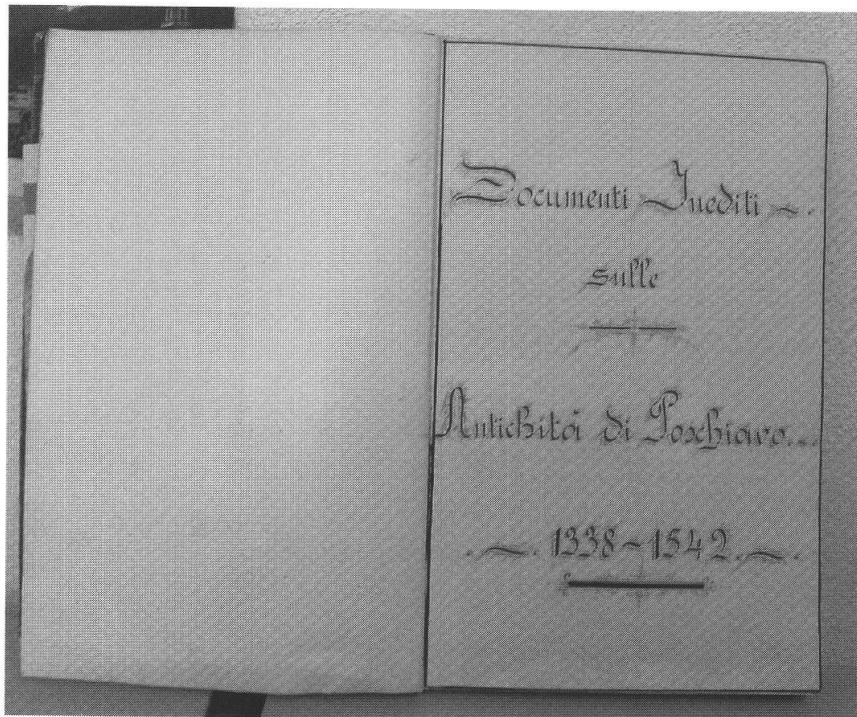 Documenti Inediti
sulle
Antichità di Poschiavo...
1338~1542